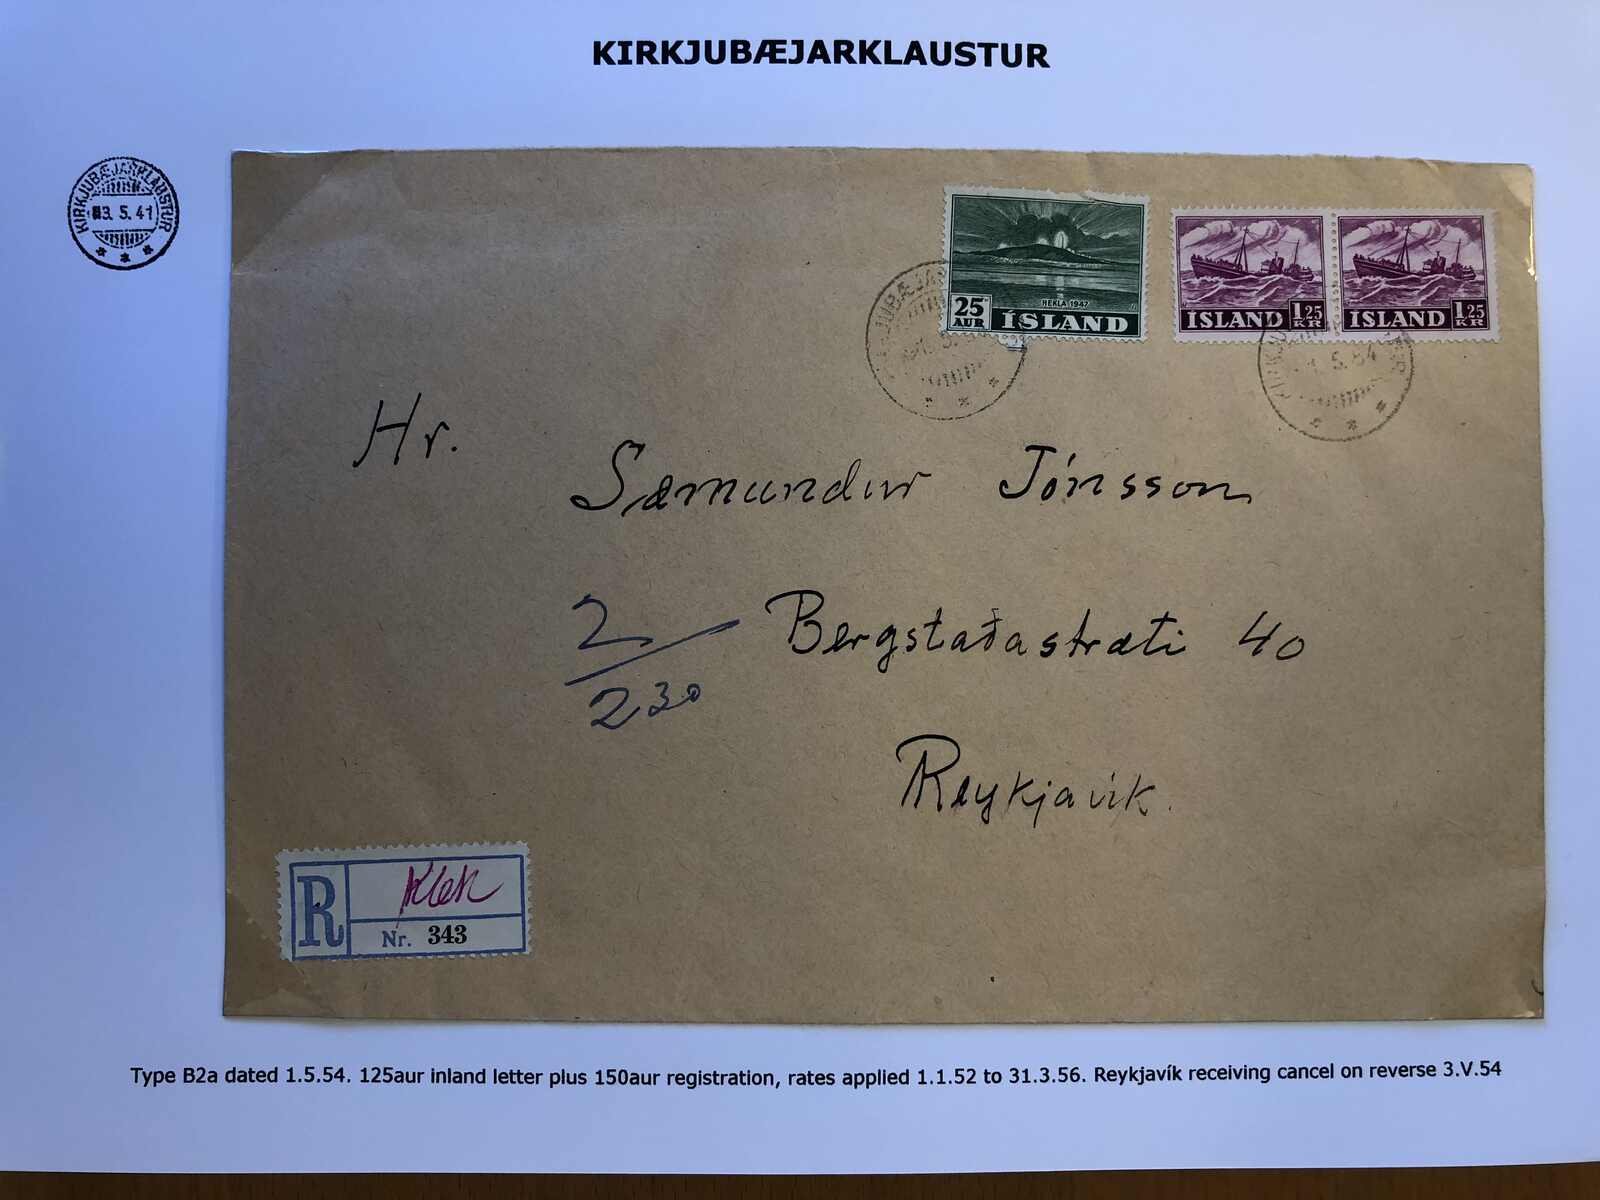 KIRKJUBÆJARKLAUSTUR
KIRKJUBÆJARKLAUSTUR
3.5.41
HEKLA 1947
25 AUR ÍSLAND
ÍSLAND 1.25 KR
ÍSLAND 1.25 KR
1.5.54
Hr.
Sæmundur Jónsson
2/230
Bergstaðastræti 40
Reykjavík.
R
Klek
Nr. 343
Type B2a dated 1.5.54. 125aur inland letter plus 150aur registration, rates applied 1.1.52 to 31.3.56. Reykjavík receiving cancel on reverse 3.V.54